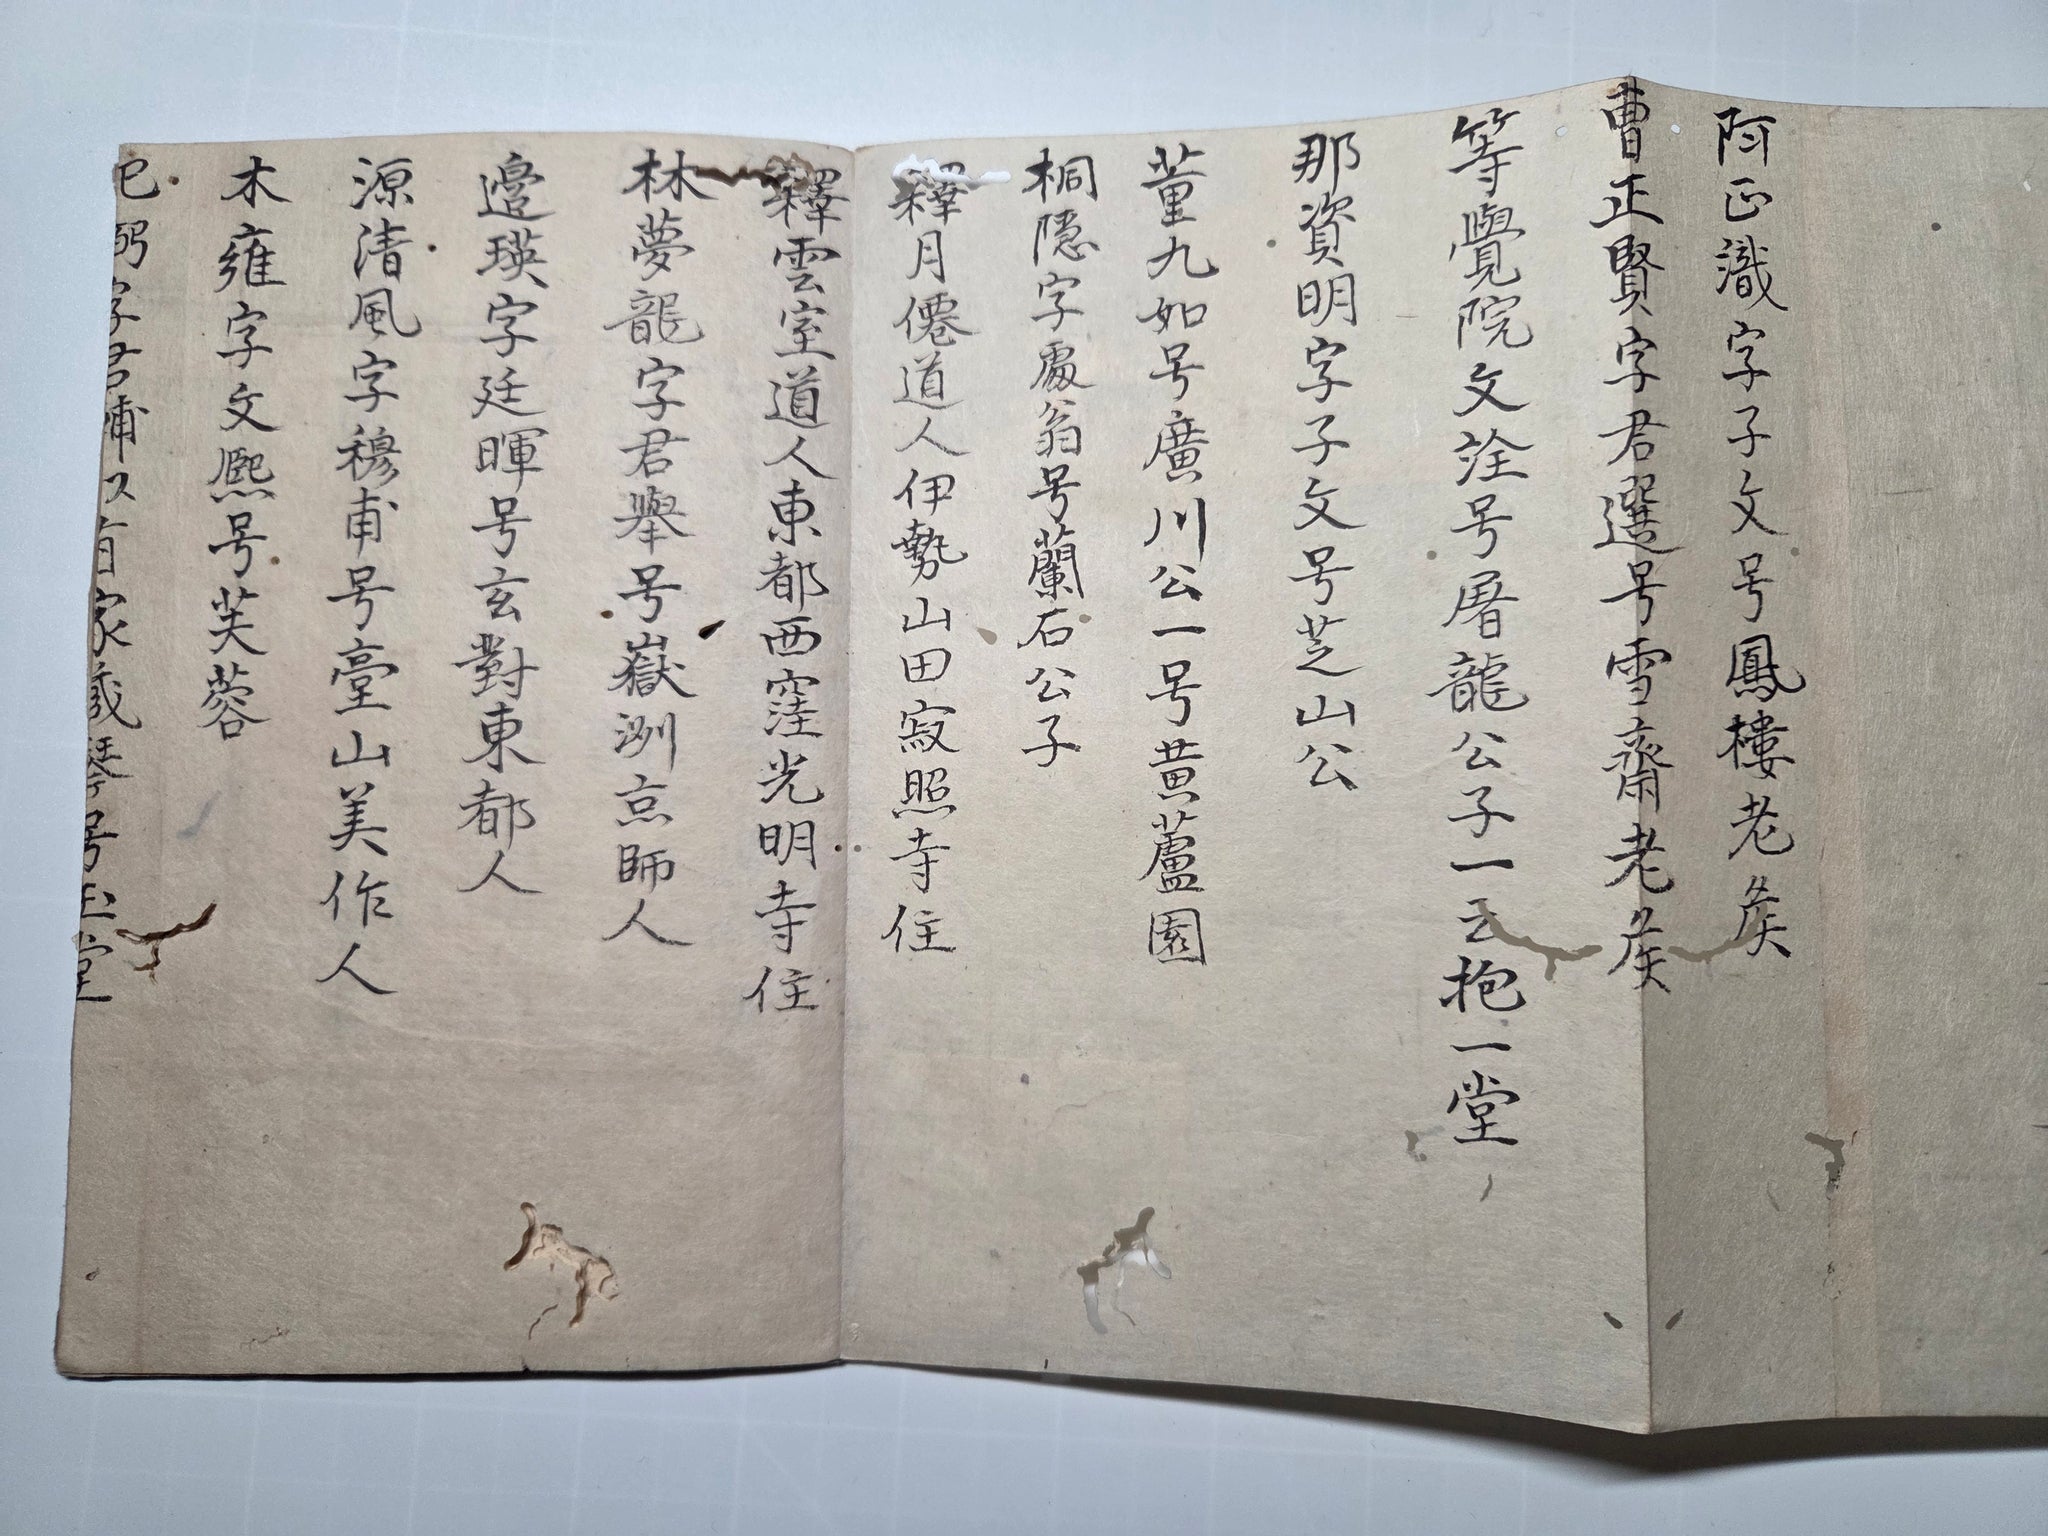 阿正識字子文号鳳樓老矦
曹正賢字君選号雪齋老矦
等覺院文詮号屠龍公子一云抱一堂
那資明字子文号芝山公
董九如号廣川公一号黄蘆園
桐隱字處翁号蘭石公子
釋月僊道人伊勢山田寂照寺住
釋雲室道人東都西窪光明寺住
林夢龍字君擧号嶽洌京師人
邉瑛字廷暉号玄對東都人
源清風字穆甫号臺山美作人
木雍字文熈号芙蓉
弼字君有家藏琴号玉堂